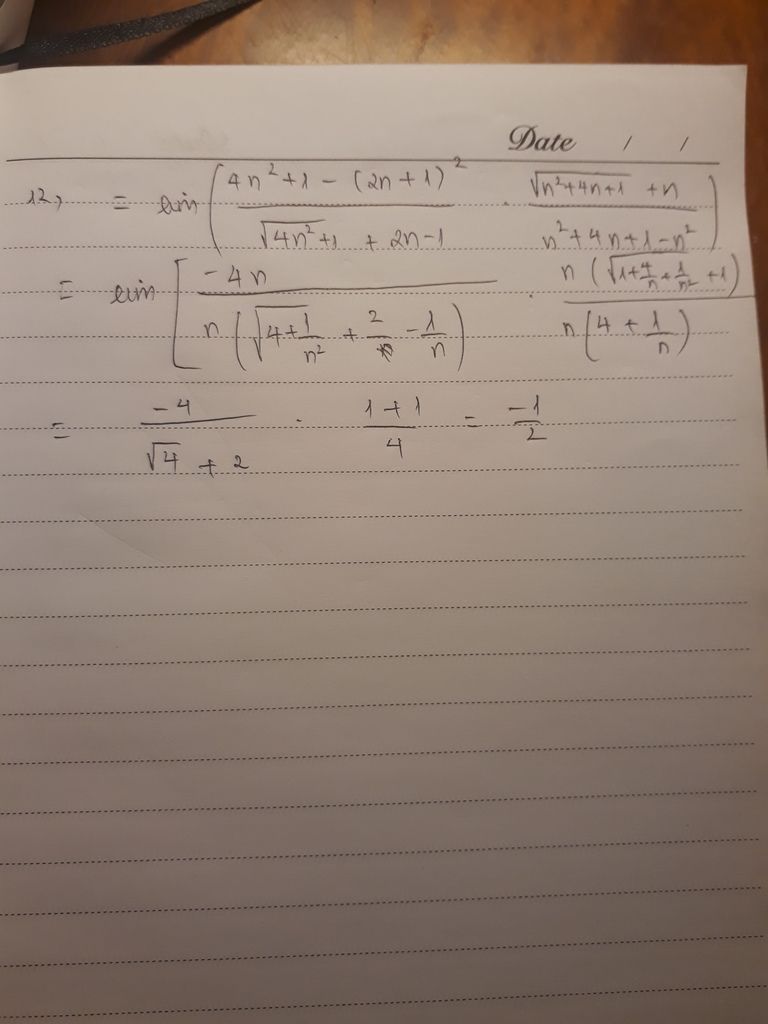 Date / /
12, = lim ( (4n² + 1 - (2n + 1)²) / (√(4n² + 1) + 2n - 1) · (√(n² + 4n + 1) + n) / (n² + 4n + 1 - n²) )
= lim [ (-4n) / (n (√(4 + 1/n²) + 2 - 1/n)) · (n (√(1 + 4/n + 1/n²) + 1)) / (n (4 + 1/n))
= -4 / (√4 + 2) · (1 + 1) / 4 = -1/2